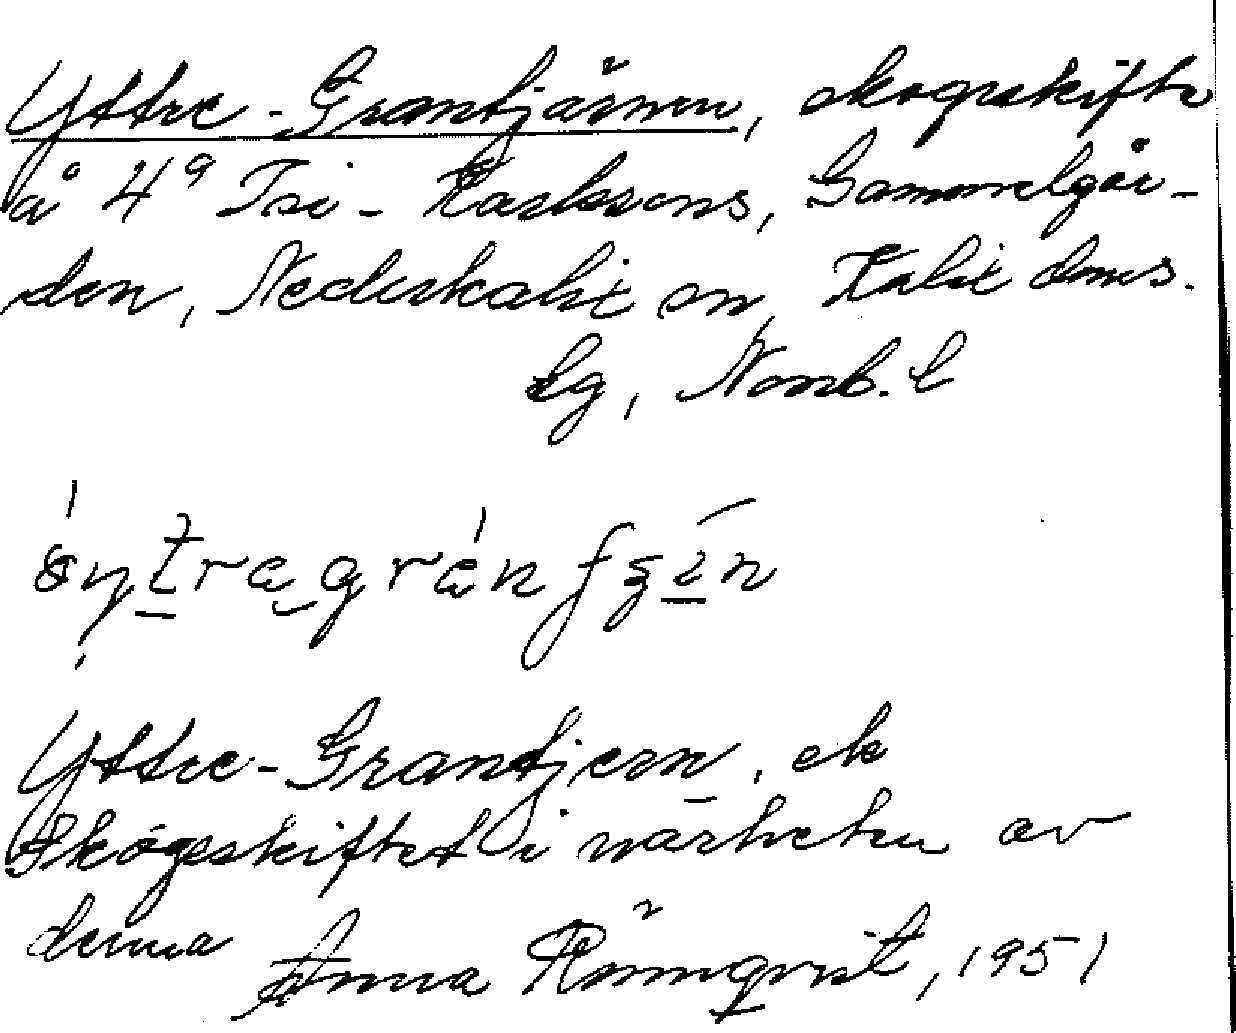 Yttre-Grantjärnen, skogsskifte
å 4⁹ Isi-Karlssons, Gammelgår-
den, Nederkalix sn, Kalix doms.
sg, Norrb. l
Yttre-Grantjern, sk
Skogsskiftet i närheten av
denna
Anna Rönnqvist, 1951